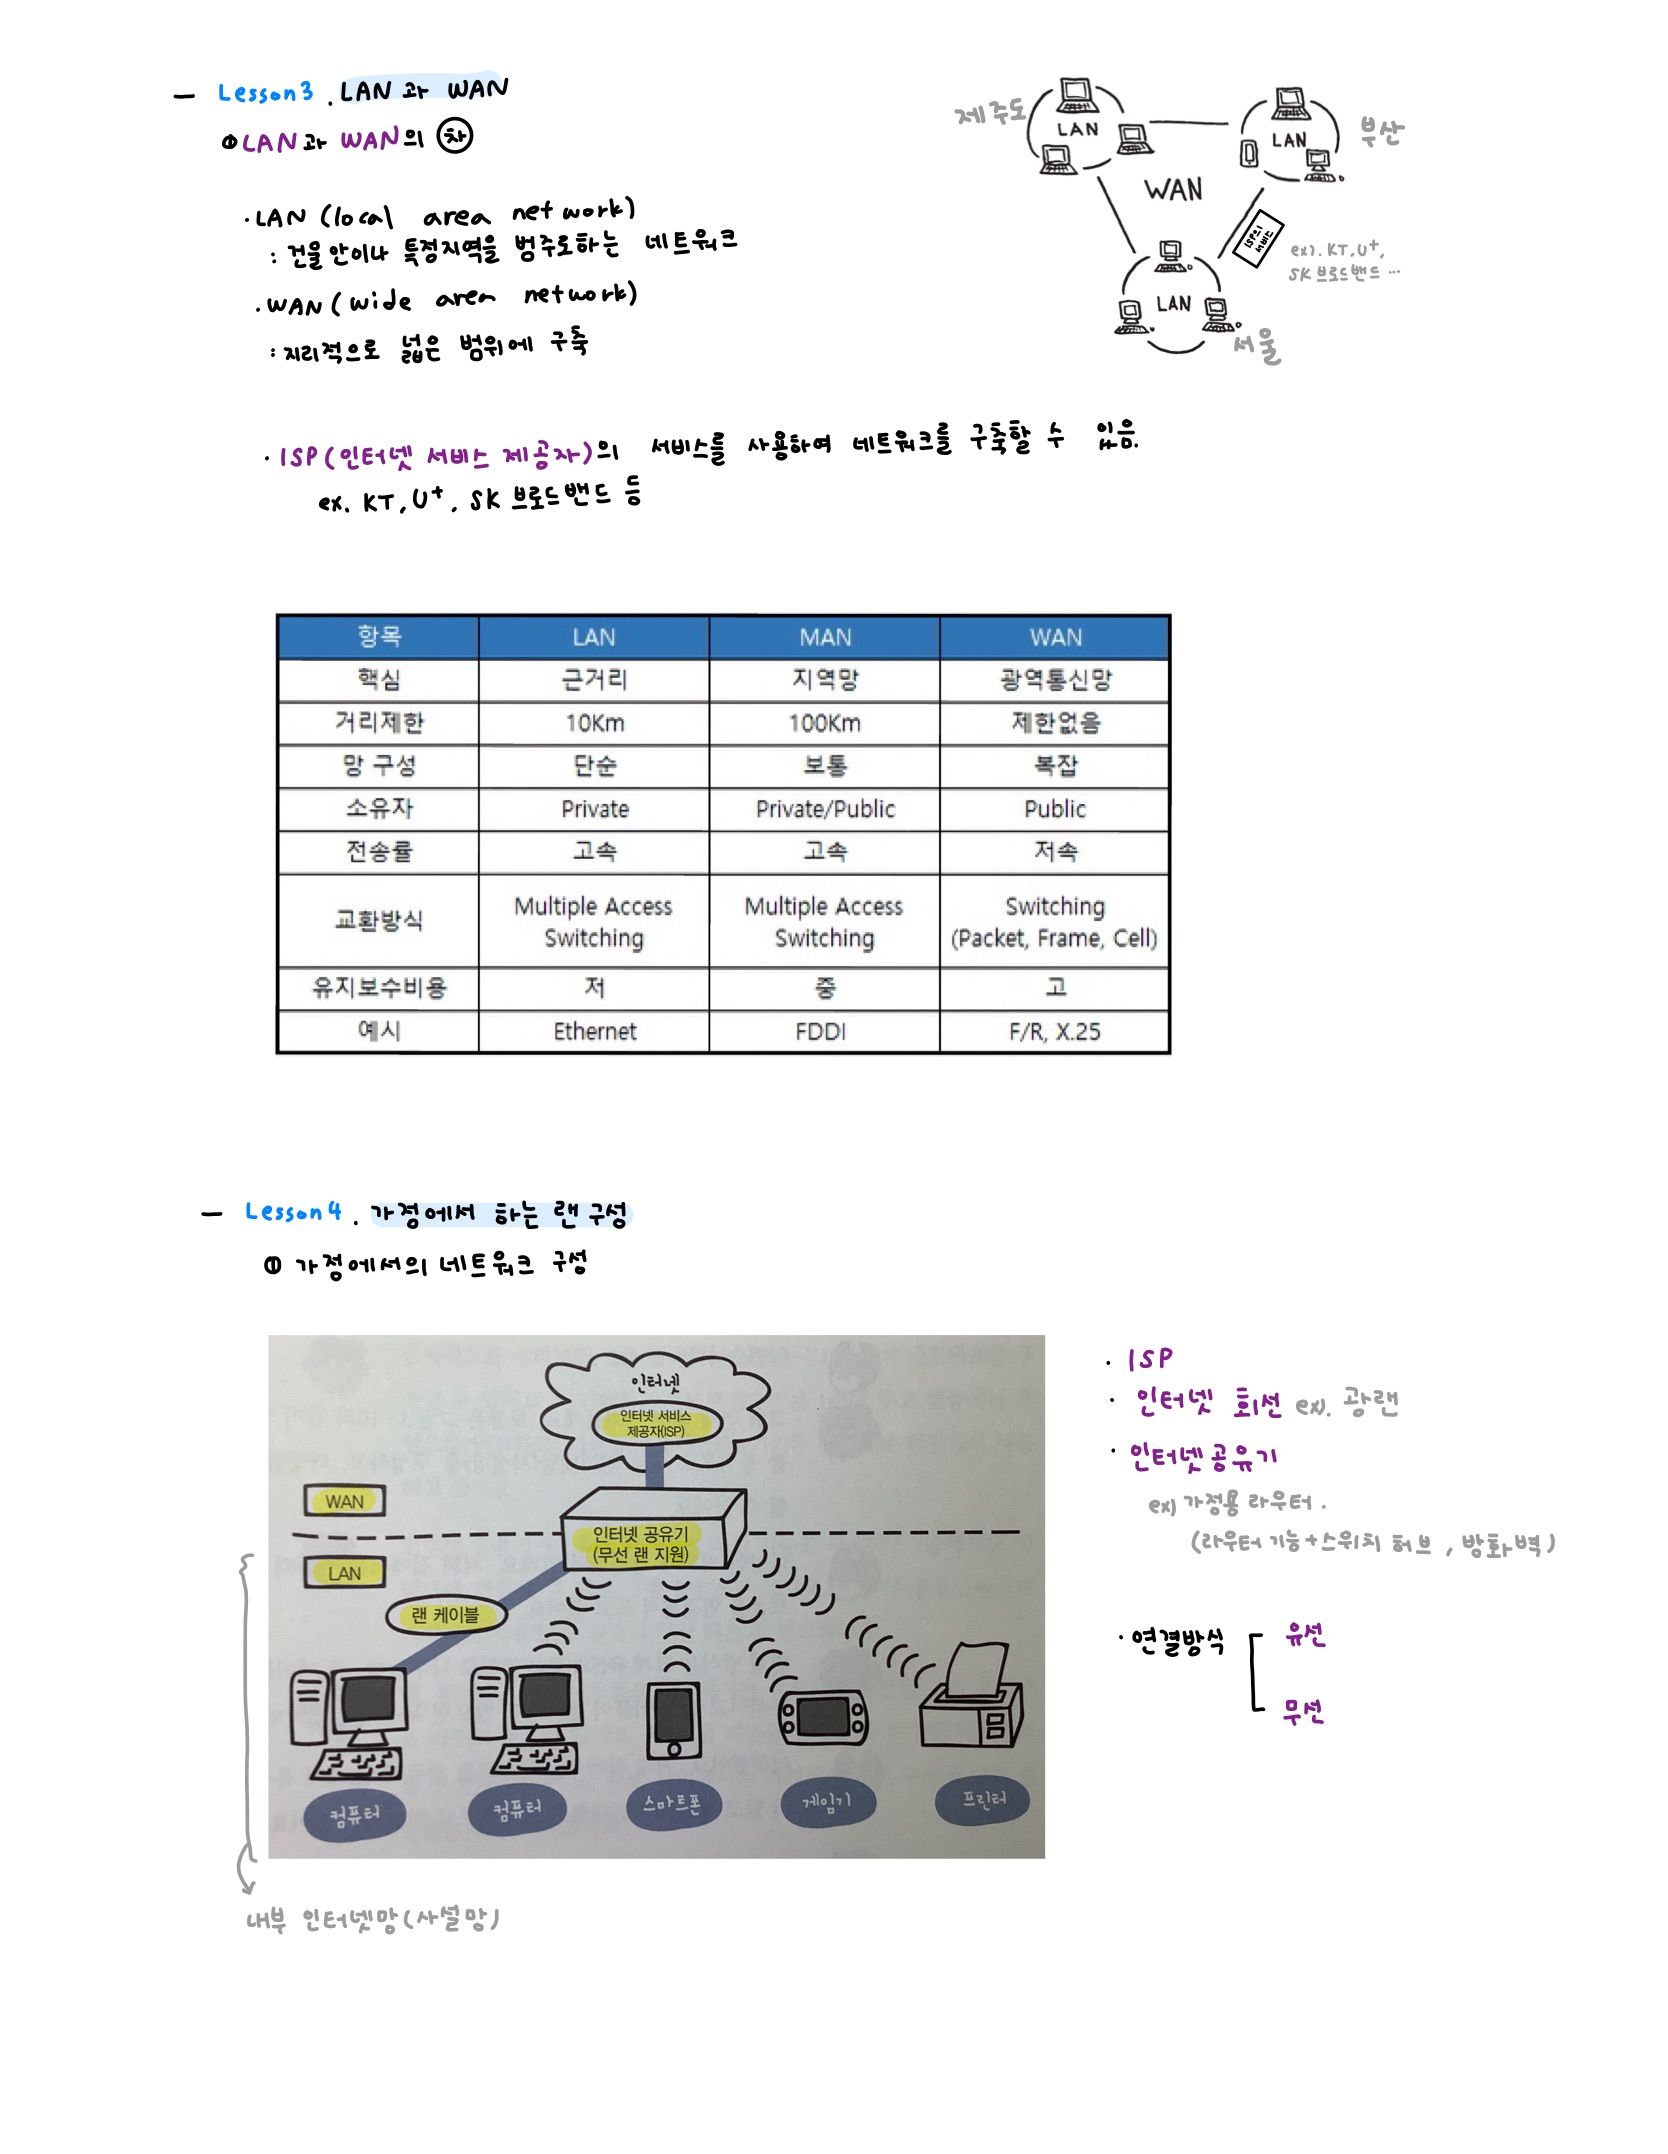 — Lesson3. LAN과 WAN
① LAN과 WAN의 차
· LAN (local area network)
: 건물안이나 특정지역을 범주로하는 네트워크
· WAN (wide area network)
: 지리적으로 넓은 범위에 구축
제주도
LAN
부산
LAN
WAN
ISP의 서비스
ex). KT, U+,
SK 브로드밴드 ...
LAN
서울
· ISP(인터넷 서비스 제공자)의 서비스를 사용하여 네트워크를 구축할 수 있음.
ex. KT, U+, SK 브로드밴드 등
항목 LAN MAN WAN
핵심 근거리 지역망 광역통신망
거리제한 10Km 100Km 제한없음
망 구성 단순 보통 복잡
소유자 Private Private/Public Public
전송률 고속 고속 저속
교환방식 Multiple Access Switching Multiple Access Switching Switching (Packet, Frame, Cell)
유지보수비용 저 중 고
예시 Ethernet FDDI F/R, X.25
— Lesson4. 가정에서 하는 랜 구성
① 가정에서의 네트워크 구성
인터넷
인터넷 서비스
제공자(ISP)
WAN
인터넷 공유기
(무선 랜 지원)
LAN
랜 케이블
컴퓨터 컴퓨터 스마트폰 게임기 프린터
내부 인터넷망(사설망)
· ISP
· 인터넷 회선 ex). 광랜
· 인터넷공유기
ex) 가정용 라우터.
(라우터 기능+스위치 허브, 방화벽)
· 연결방식
유선
무선